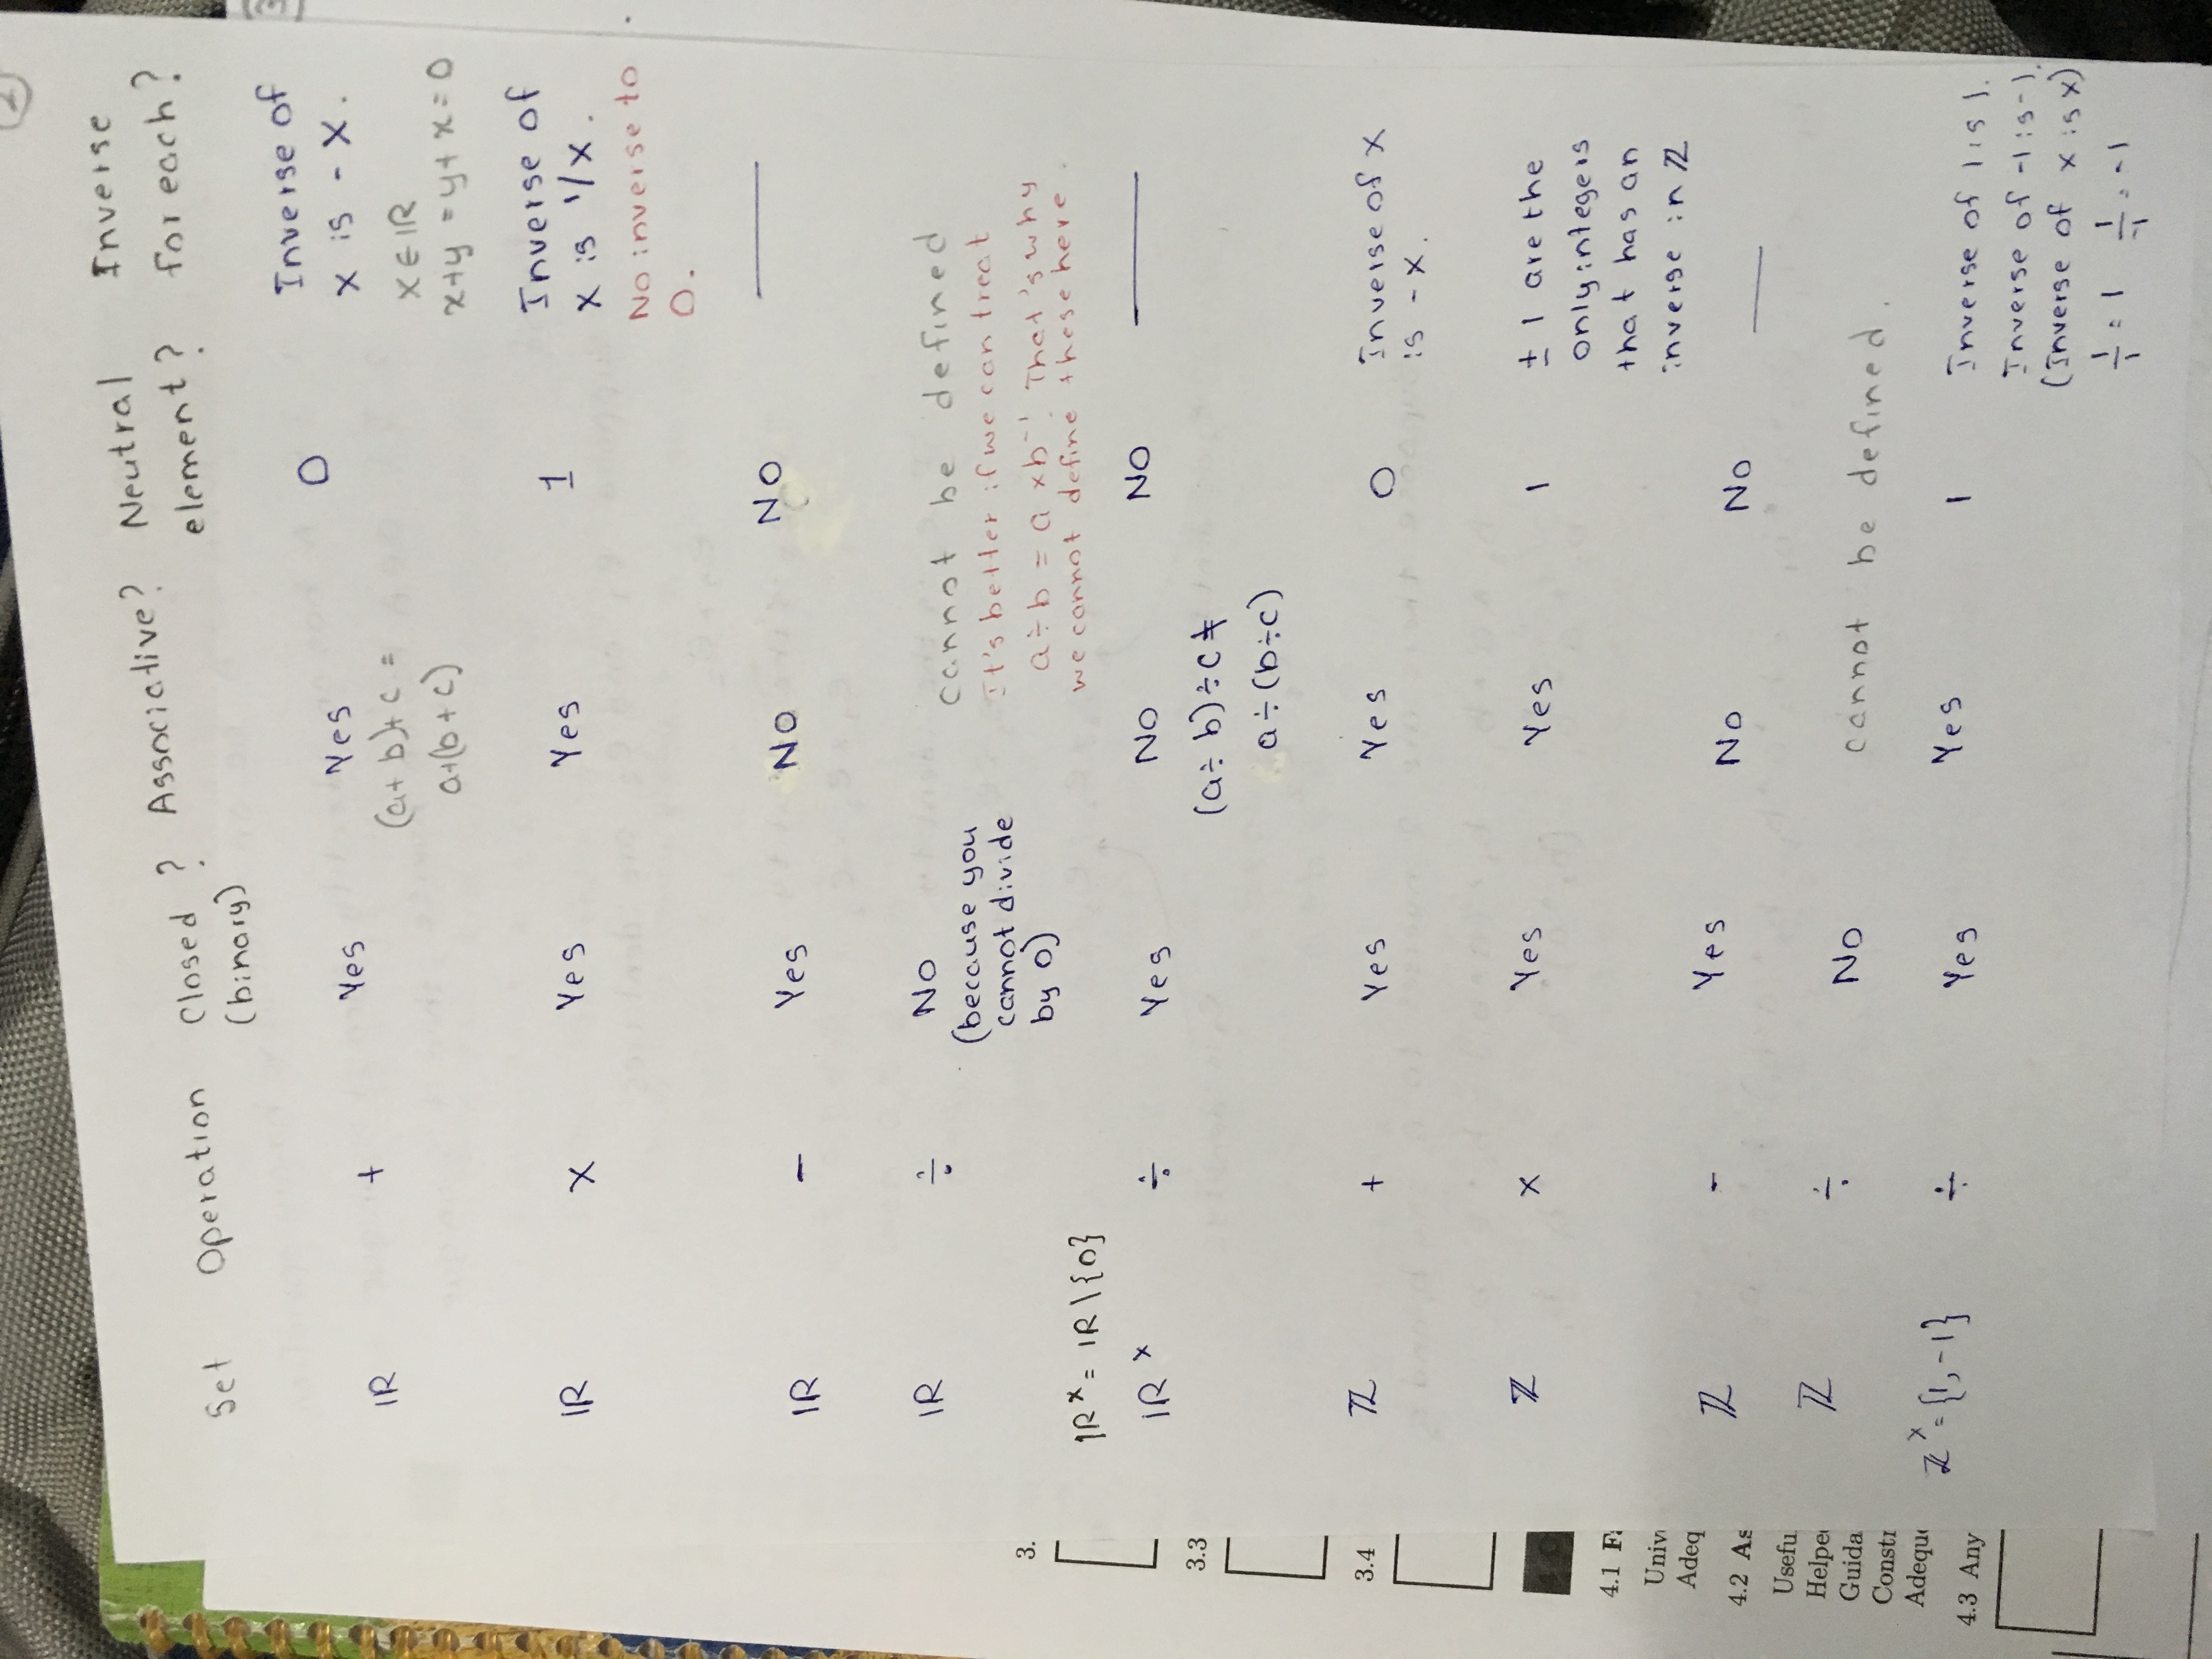 2
Set Operation Closed ? Associative? Neutral Inverse
(binary) element? for each?
ℝ + Yes Yes 0 Inverse of
x is - x.
(a+ b)+ c =
a+(b + c)
x ∈ ℝ
x+y = y+ x = 0
ℝ x Yes Yes 1 Inverse of
x is 1/x.
No inverse to
0.
ℝ - Yes NO NO —
ℝ ÷ NO cannot be defined
(because you
cannot divide
by 0)
It's better if we can treat
a ÷ b = a x b⁻¹. That's why
we cannot define these here.
ℝˣ = ℝ \ {0}
ℝˣ ÷ Yes NO NO —
(a ÷ b) ÷ c ≠
a ÷ (b ÷ c)
ℤ + Yes Yes 0 Inverse of x
is - x.
ℤ x Yes Yes 1 ± 1 are the
only integers
that has an
inverse in ℤ
ℤ - Yes No No —
ℤ ÷ No cannot be defined.
ℤˣ = {1, -1} ÷ Yes Yes 1 Inverse of 1 is 1.
Inverse of -1 is -1.
(Inverse of x is x)
1/1 = 1 1/-1 = -1
3.
3.3
3.4
4.1
Adeq
4.2 As
Usefu
Helpe
Guida
Const
Adequ
4.3 Any